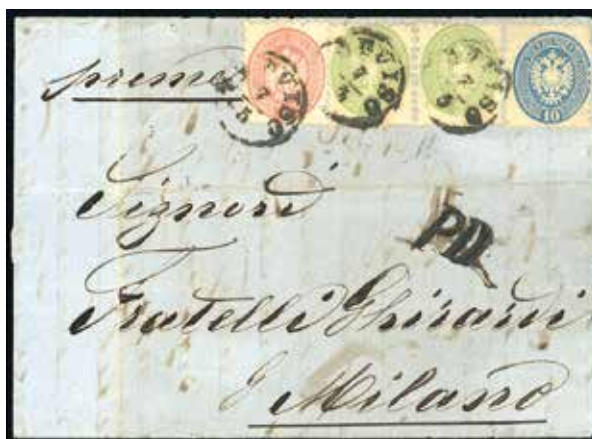 preme
TREVISO
7
5
TREVISO
7
5
TREVISO
7
5
10
PD
Signori
Fratelli Ghirardi
Milano